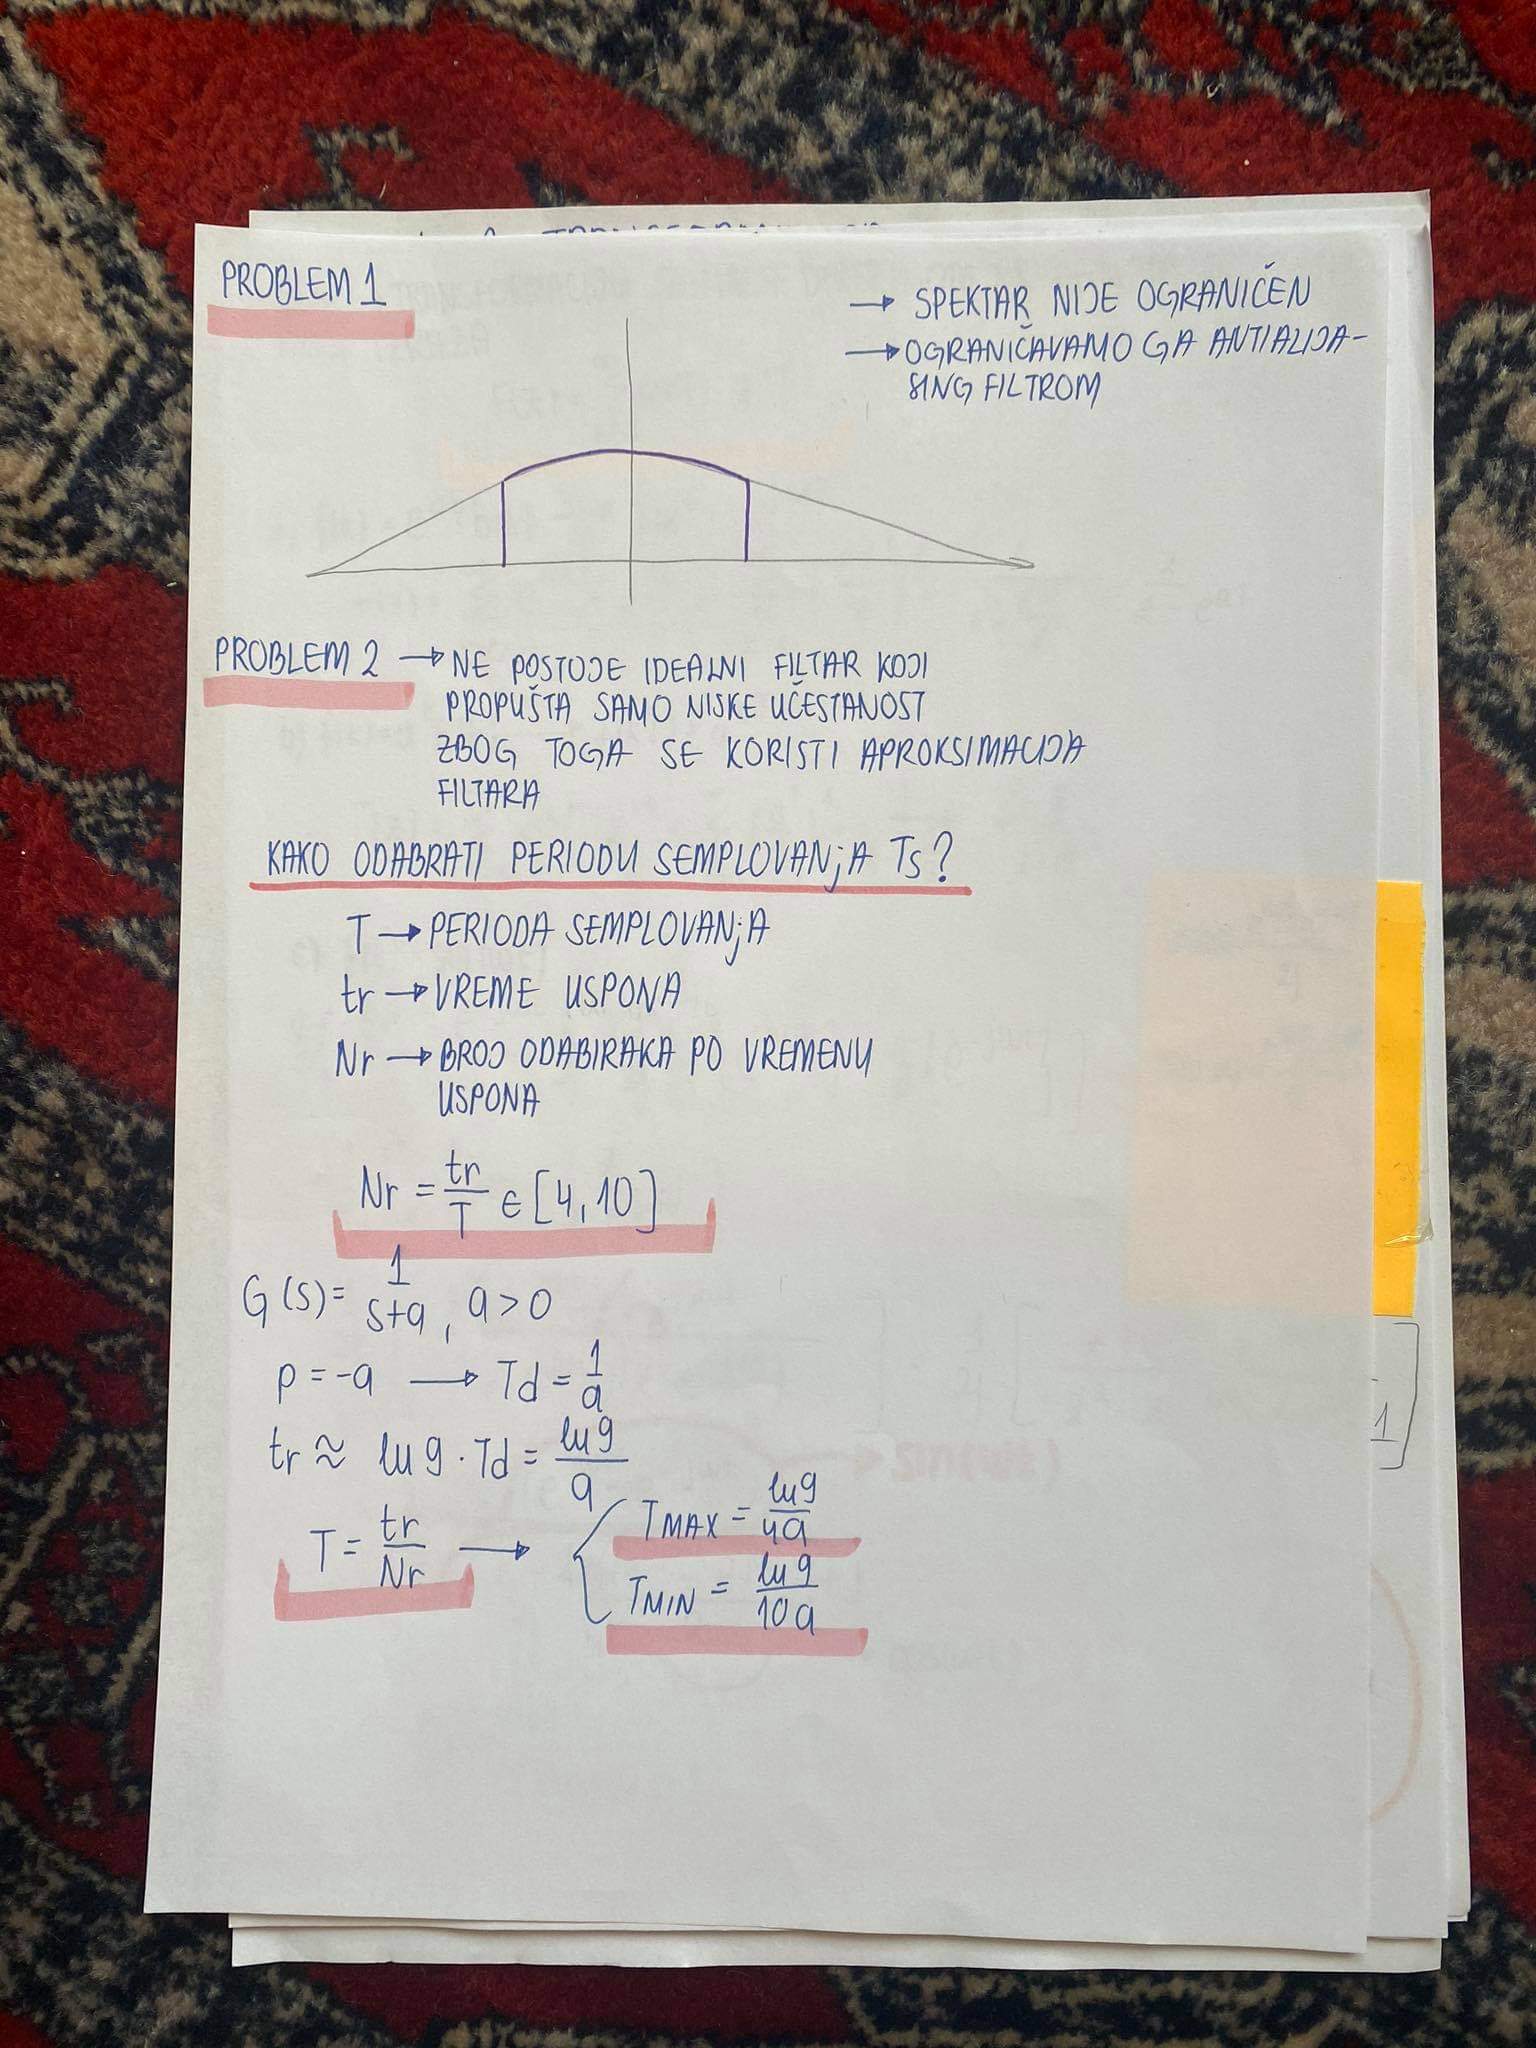 PROBLEM 1
→ SPEKTAR NIJE OGRANIČEN
→ OGRANIČAVAMO GA ANTIALIJA-
SING FILTROM
PROBLEM 2 → NE POSTOJE IDEALNI FILTAR KOJI
PROPUŠTA SAMO NISKE UČESTANOST
ZBOG TOGA SE KORISTI APROKSIMACIJA
FILTARA
KAKO ODABRATI PERIODU SEMPLOVANjA Ts?
T → PERIODA SEMPLOVANjA
tr → VREME USPONA
Nr → BROJ ODABIRAKA PO VREMENU
USPONA
Nr = tr/T ∈ [4, 10]
G(s) = 1/(s+a), a > 0
p = -a → Td = 1/a
tr ≈ ln 9 · Td = ln 9/a
T = tr/Nr → { TMAX = ln 9/4a
TMIN = ln 9/10a
1